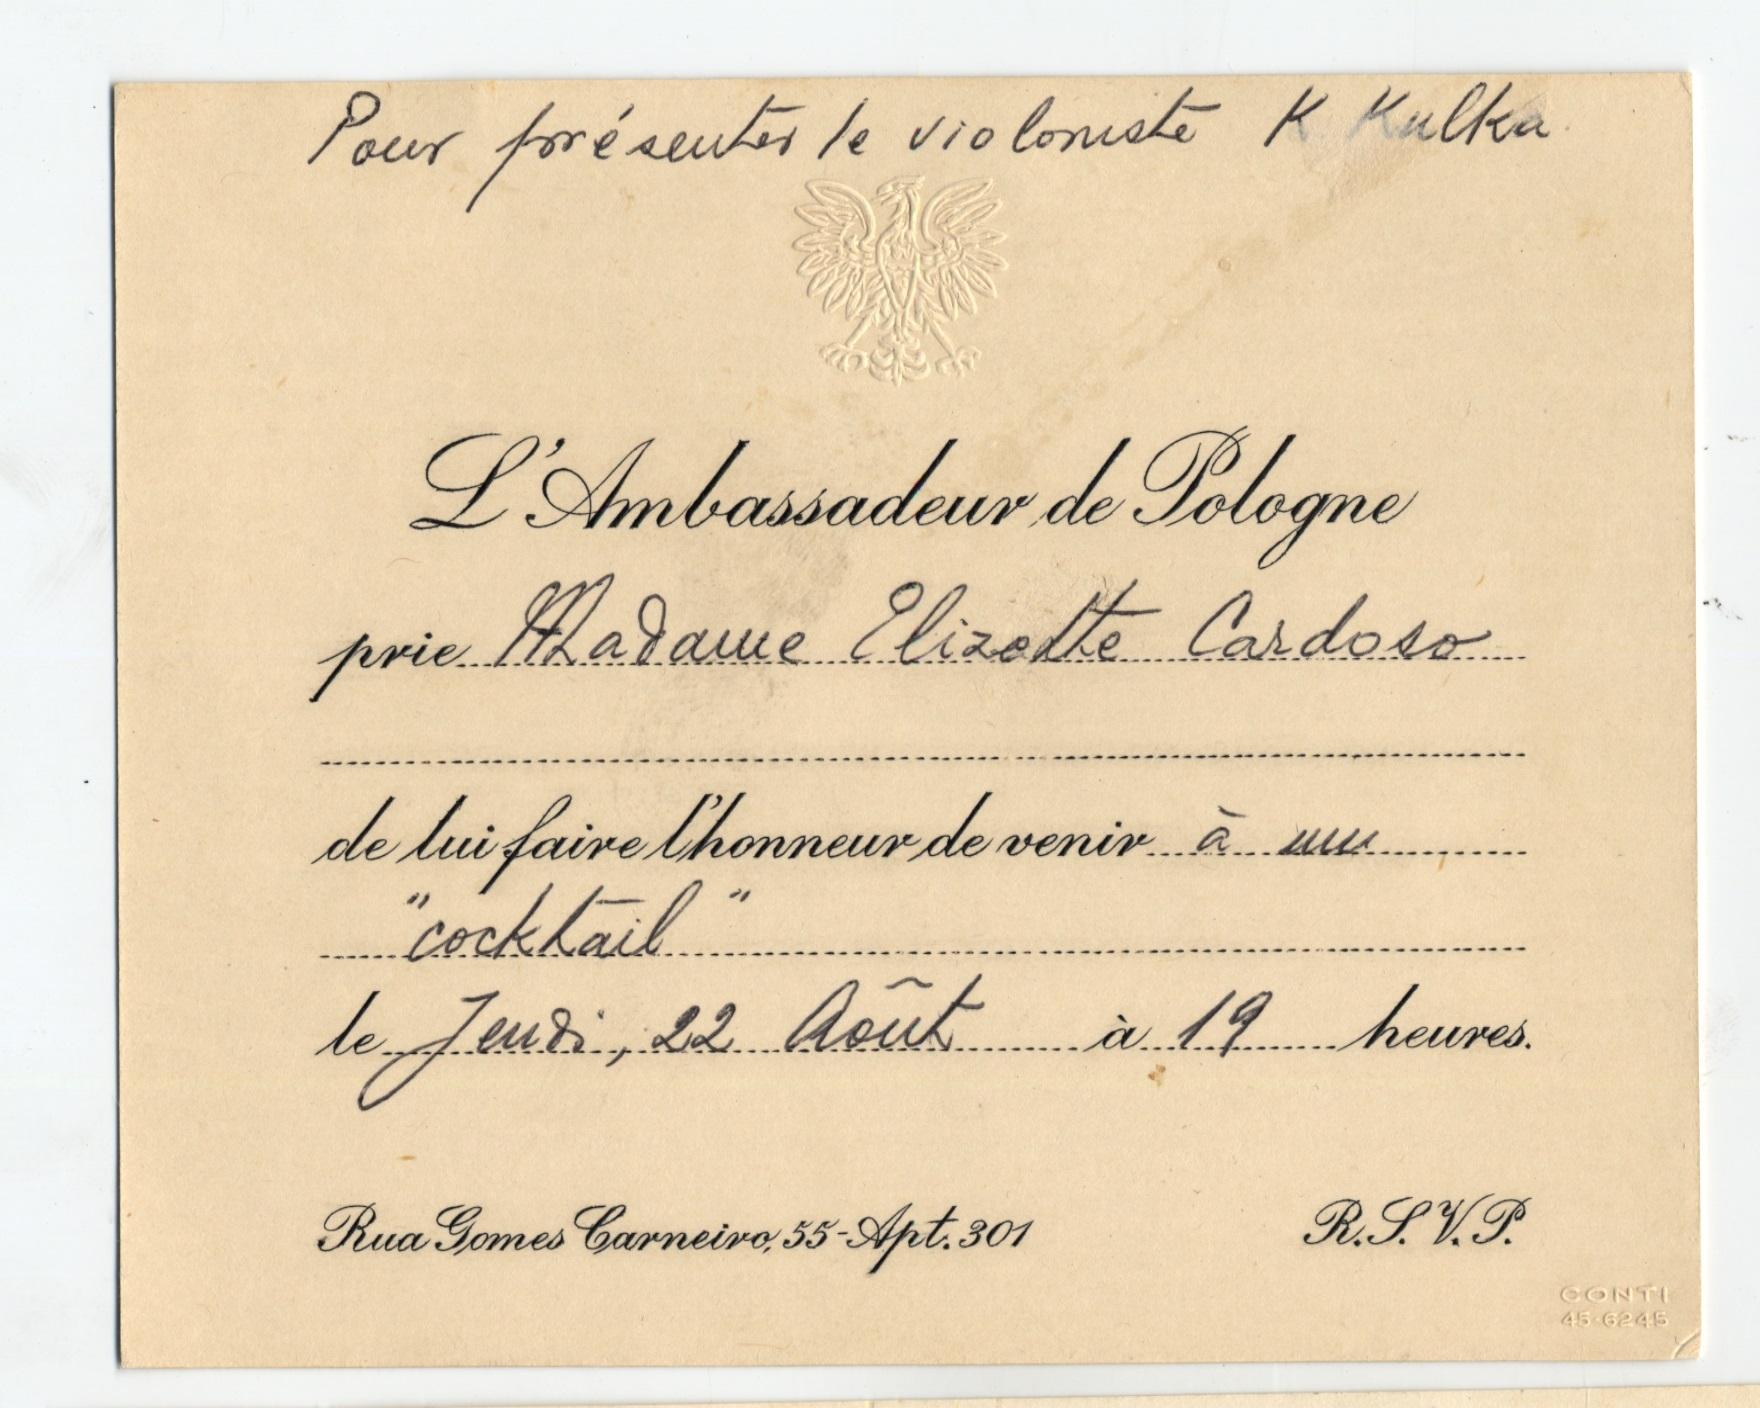 Pour présenter le violoniste K Kulka
L'Ambassadeur de Pologne
prie Madame Elizette Cardoso
de lui faire l'honneur de venir à un
"cocktail"
le Jeudi, 22 Août à 19 heures.
Rua Gomes Carneiro, 55-Apt. 301 R.S.V.P.
CONTI
45-6245